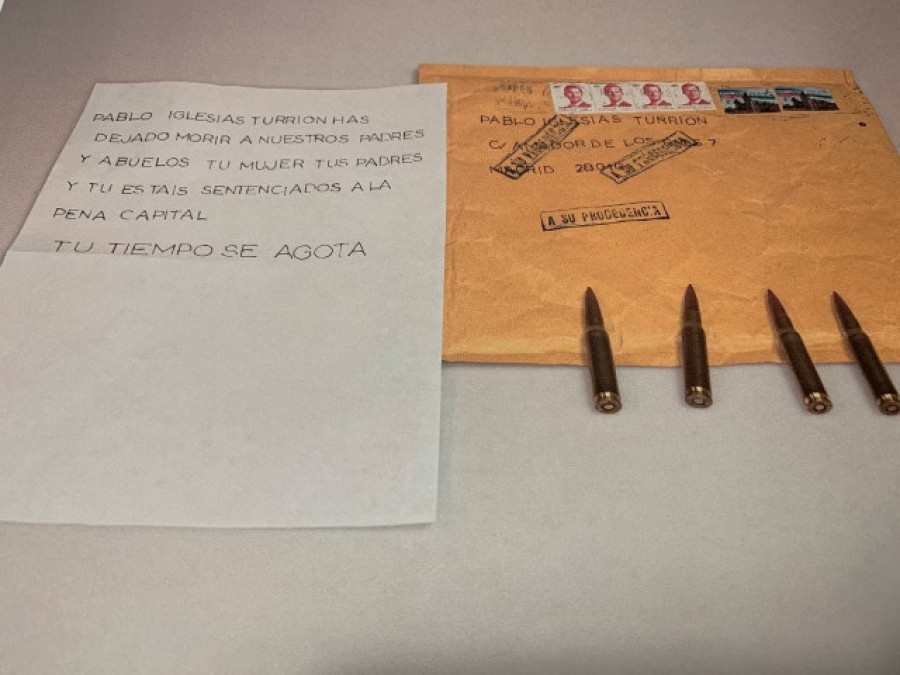 PABLO IGLESIAS TURRION HAS
DEJADO MORIR A NUESTROS PADRES
Y ABUELOS TU MUJER TUS PADRES
Y TU ESTAIS SENTENCIADOS A LA
PENA CAPITAL
TU TIEMPO SE AGOTA
PABLO IGLESIAS TURRION
C/ DE LOS 7
MADRID
A SU PROCEDENCIA
A SU PROCEDENCIA
A SU PROCEDENCIA